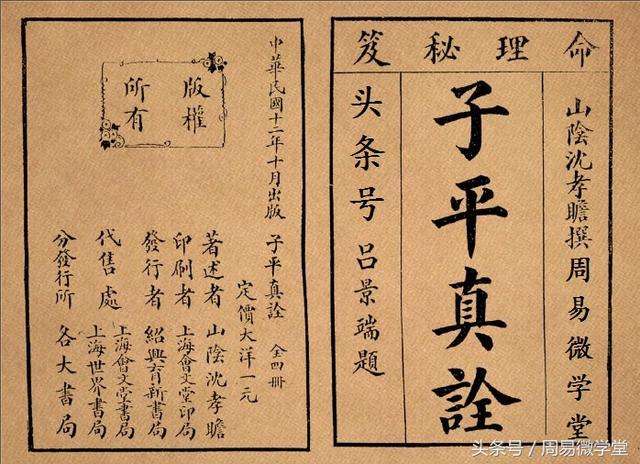 命理秘笈
山陰沈孝瞻撰周易微学堂
子平真詮
头条号吕景端題
中華民國十二年十月出版
版權
所有
子平真詮 全四冊
定價大洋一元
著述者 山陰沈孝瞻
印刷者 上海會文堂印局
發行者 紹興育新書局
代售處 上海會文堂書局
上海世界書局
分發行所 各大書局
头条号 / 周易微学堂